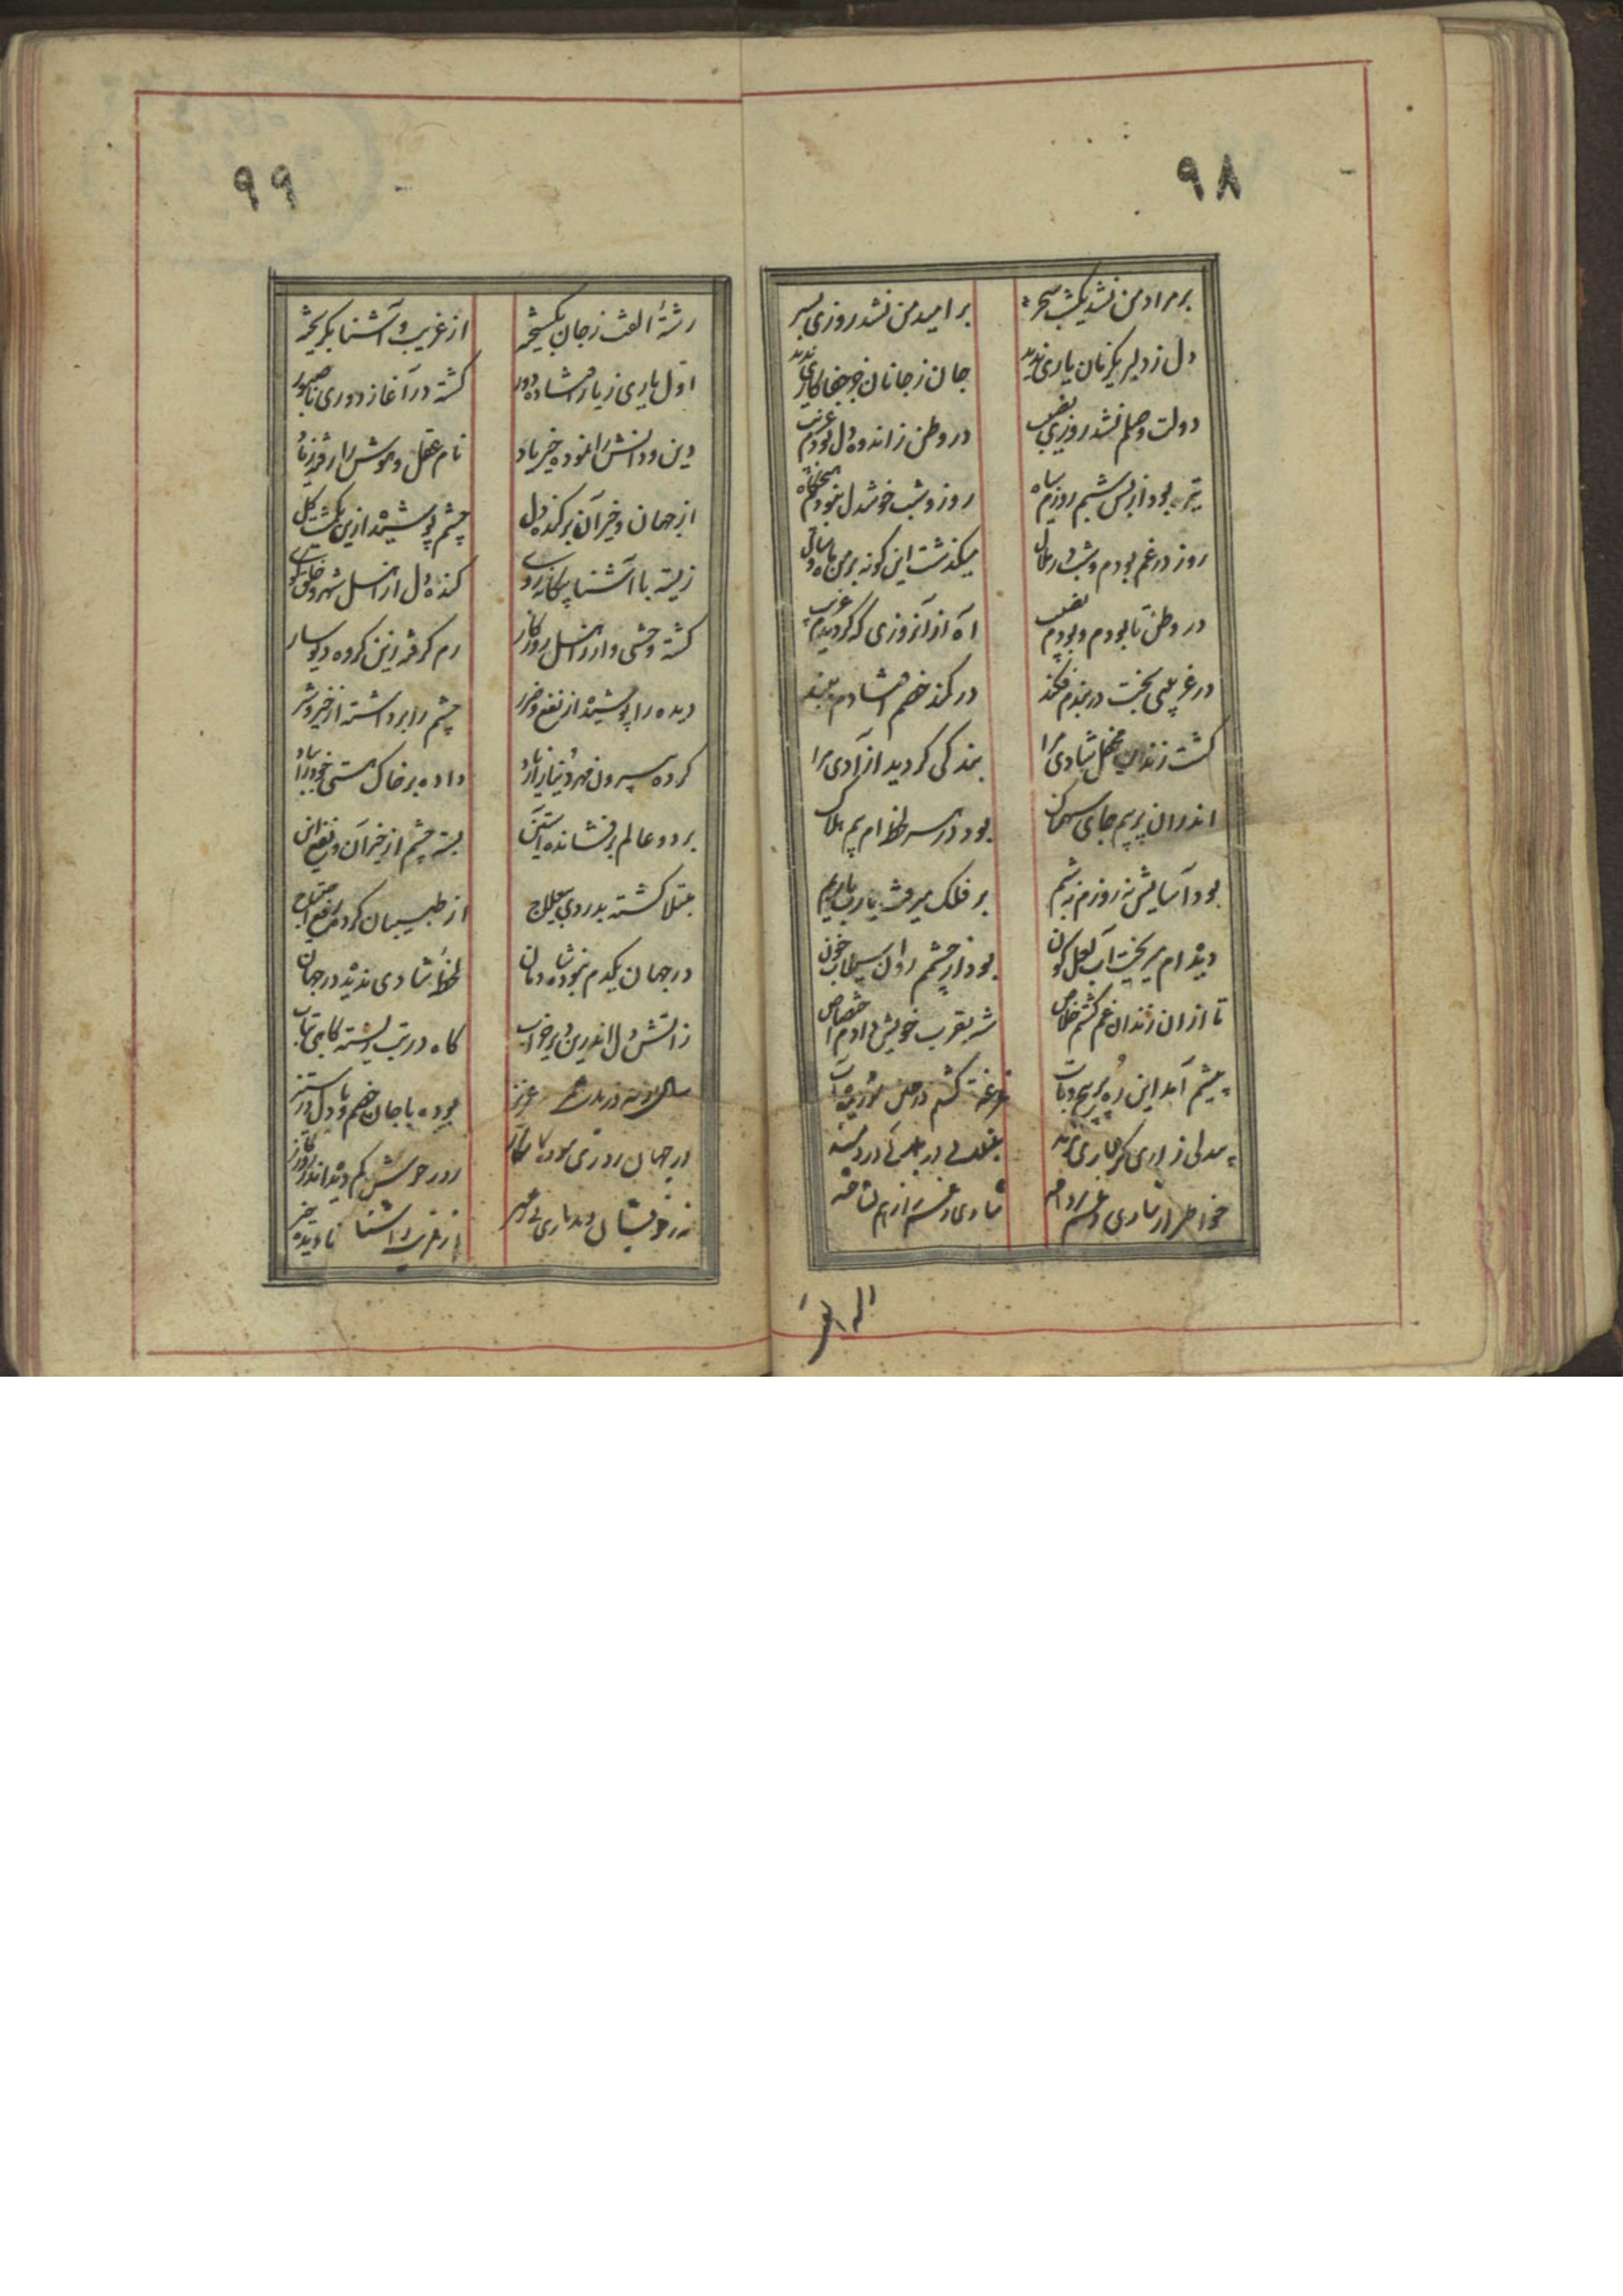 ۹۸
بر مراد من نشد یکشب سحر
بر امید من نشد روزی بسر
دل ز دلبر یکزمان یاری ندید
جان ز جانان جز جفاکاری ندید
دولت وصلم نشد روزی نصیب
در وطن ز اندوه دل بودم غریب
تیره بود از بس شبم روزم سیاه
روز و شب خوشدل نبودم هیچگاه
روز در غم بودم و شب در ملال
میگذشت این گونه بر من ماه و سال
در وطن تا بودم و بودم نصیب
آه از آنروزی که گردیدم غریب
در غریبی بخت در بندم فکند
در کمند خصم افتادم ببند
گشت زندان محفل شادی مرا
بندگی گردید آزادی مرا
اندران پر بیم جای سهمناک
بود در هر لحظه ام بیم هلاک
بود آسایش نه روزم نه شبم
بر فلک میرفت یارب یاربم
دیده ام میریخت آب لعل گون
بود از چشمم روان سیلاب خون
تا از ان زندان غم گشتم خلاص
شه بقرب خویش دادم اختصاص
پیشم آمد این ره پر پیچ و تاب
غرغه گشتم در
بیدلی زاری گرفتاری
مبتلائی در
خواطر از شادی و غم
شادی و غم از هم نشناخته
۹۹
رشتهٔ الفت ز جان بگسیخته
از غریب و آشنا بگریخته
اول یاری ز یار افتاده دور
گشته در آغاز دوری ناصبور
دین و دانش را نموده خیرباد
نام عقل و هوش را رفته ز یاد
از جهان و خیر آن برکنده دل
چشم پوشیده ازین یکمشت گل
زیسته با آشنا بیگانه روی
کنده دل از اهل شهر و خلق کوی
گشته وحشی وار از اهل روزگار
رم گرفته زین گروه دیوسار
دیده را پوشیده از نفع و ضرر
چشم را برداشته از خیر و شر
کرده بیرون مهر دنیا از نهاد
داده بر خاک هستی خود را بباد
بر دو عالم برفشانده آستین
بسته چشم از خیر آن و نفع این
مبتلا گشته بدردی بیعلاج
از طبیبان کرده رفع احتیاج
در جهان یکدم نبوده شادمان
لحظهٔ شادی ندیده در جهان
ز آتش دل اندرین دیر خراب
گاه در تب بسته گاهی تاب
عزیز
بوده با جان خصم و با دل در ستیز
در جهان روزی
روز خوش کم دیده اندر روزگار
نه ز خویشان